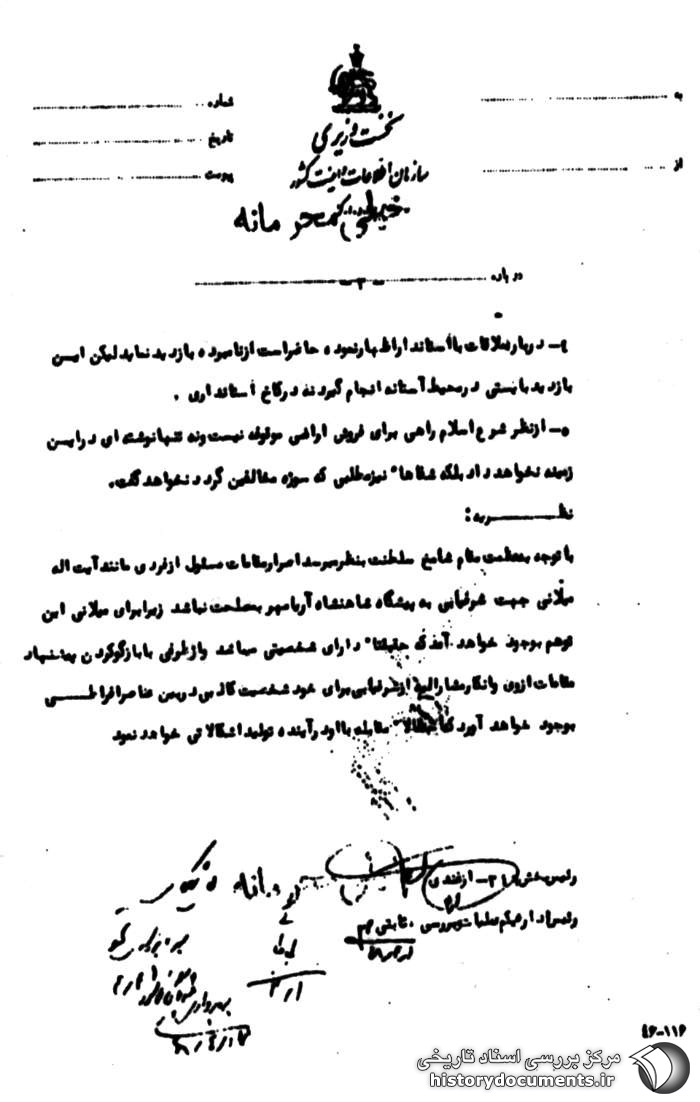 به
شماره
نخست وزیری
تاریخ
از
سازمان اطلاعات و امنیت کشور
پیوست
خیلی محرمانه
درباره
-۳-
۴- درباره ملاقات با استاندار اظهار نموده حاضر است از نامبرده بازدید نماید لیکن این
بازدید بایستی در محیط آستانه انجام گیرد نه در کاخ استانداری .
۵- از نظر شرع اسلام راهی برای فروش اراضی موقوفه نیست و نه تنها نوشته ای در این
زمینه نخواهد داد بلکه شفاها" نیز مطلبی که سوژه مخالفین گردد نخواهد گفت.
نظریه :
با توجه بعظمت مقام شامخ سلطنت بنظر میرسد اصرار مقامات مسئول از فردی مانند آیت اله
میلانی جهت شرفیابی به پیشگاه شاهنشاه آریامهر بمصلحت نباشد زیرا برای میلانی این
توهم بوجود خواهد آمد که حقیقتا" دارای شخصیتی میباشد و از طرفی با بازگو کردن پیشنهاد
مقامات از وی و انکار مشارالیه از شرفیابی برای خود شخصیت کاذبی در بین عناصر افراطی
بوجود خواهد آورد که مقابله با او در آینده تولید اشکالاتی خواهد نمود
رئیس بخش ۲۱- ازغندی
رئیس اداره یکم عملیات و بررسی . ثابتی
۴۶-۱۱۶
مرکز بررسی اسناد تاریخی
historydocuments.ir